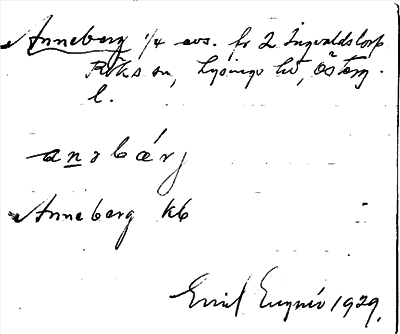 Anneberg 1/4 avs. fr 2 Ingvaldstorp
Röks sn, Lysings hd, Österg.
l.
anəbærj
Anneberg kb
Emil 1929.